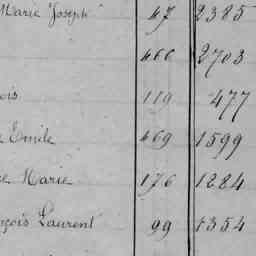 Marie Joseph 47 2385
466 2703
119 477
Emile 469 1599
Marie 176 1284
Laurent 99 1354